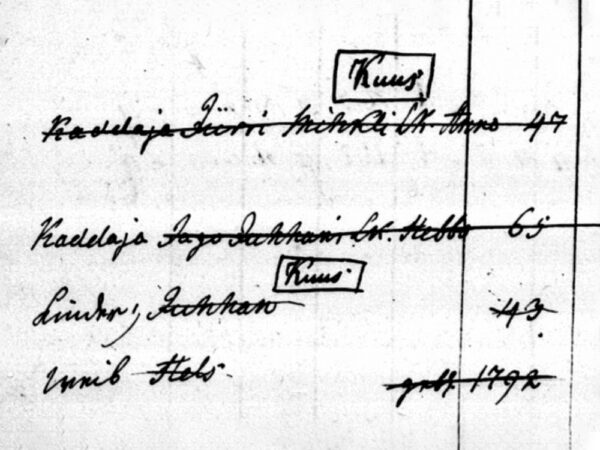 Kuus.
Kaddaja Jürri Mihkli Lk. Anno 47
Kaddaja Jago Juhhani Lk. Hebbo 65
Kuus.
Linder, Juhhan 43
weib Hels. 1792